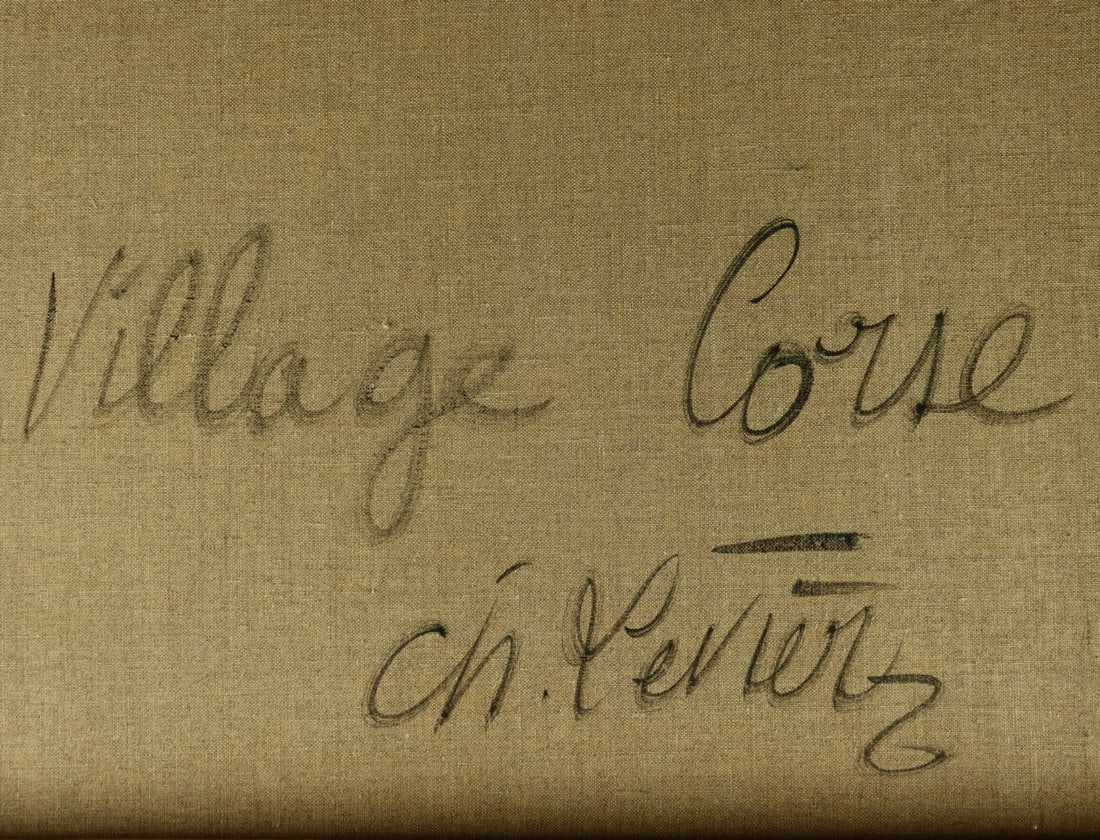 Village Corse
Ch. Levier